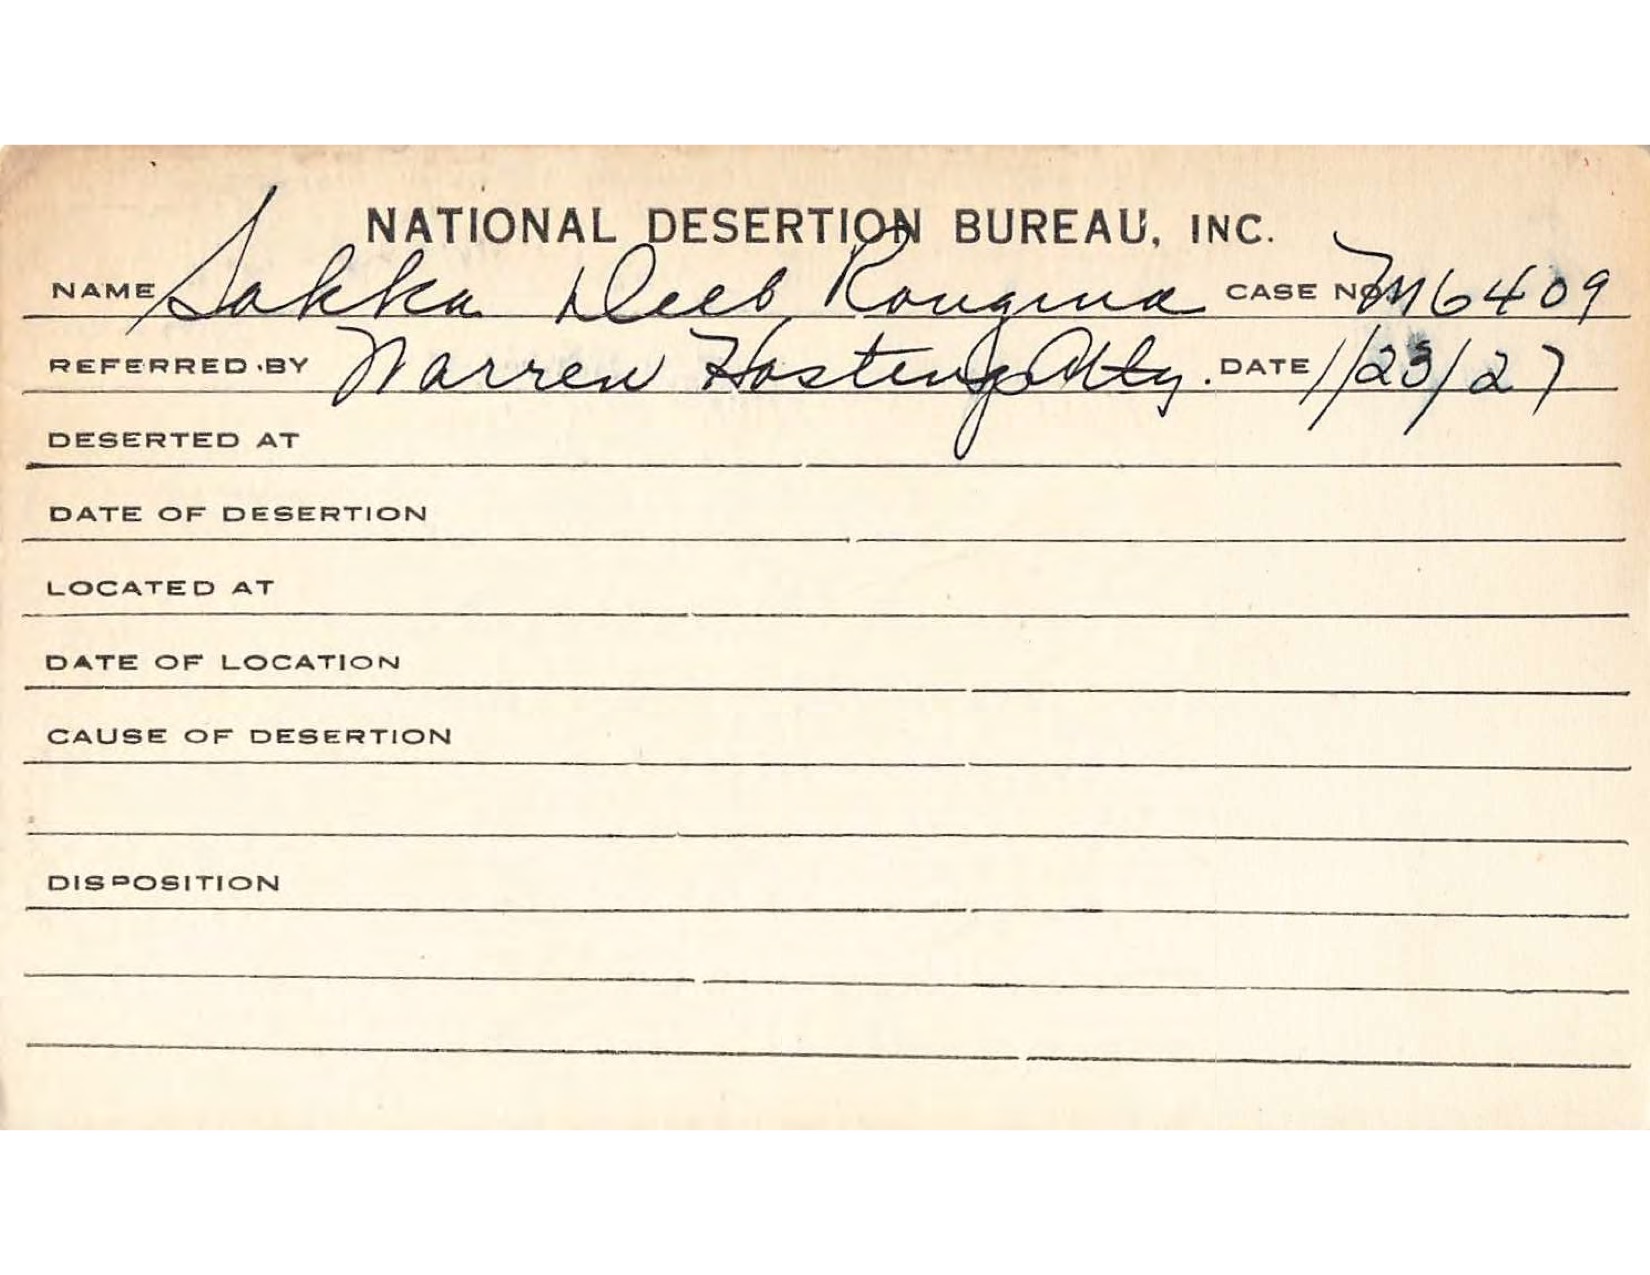 NATIONAL DESERTION BUREAU, INC.
NAME Sakka Deeb, CASE NO. M6409
REFERRED BY Warren Hastings Atty. DATE 1/23/27
DESERTED AT
DATE OF DESERTION
LOCATED AT
DATE OF LOCATION
CAUSE OF DESERTION
DISPOSITION